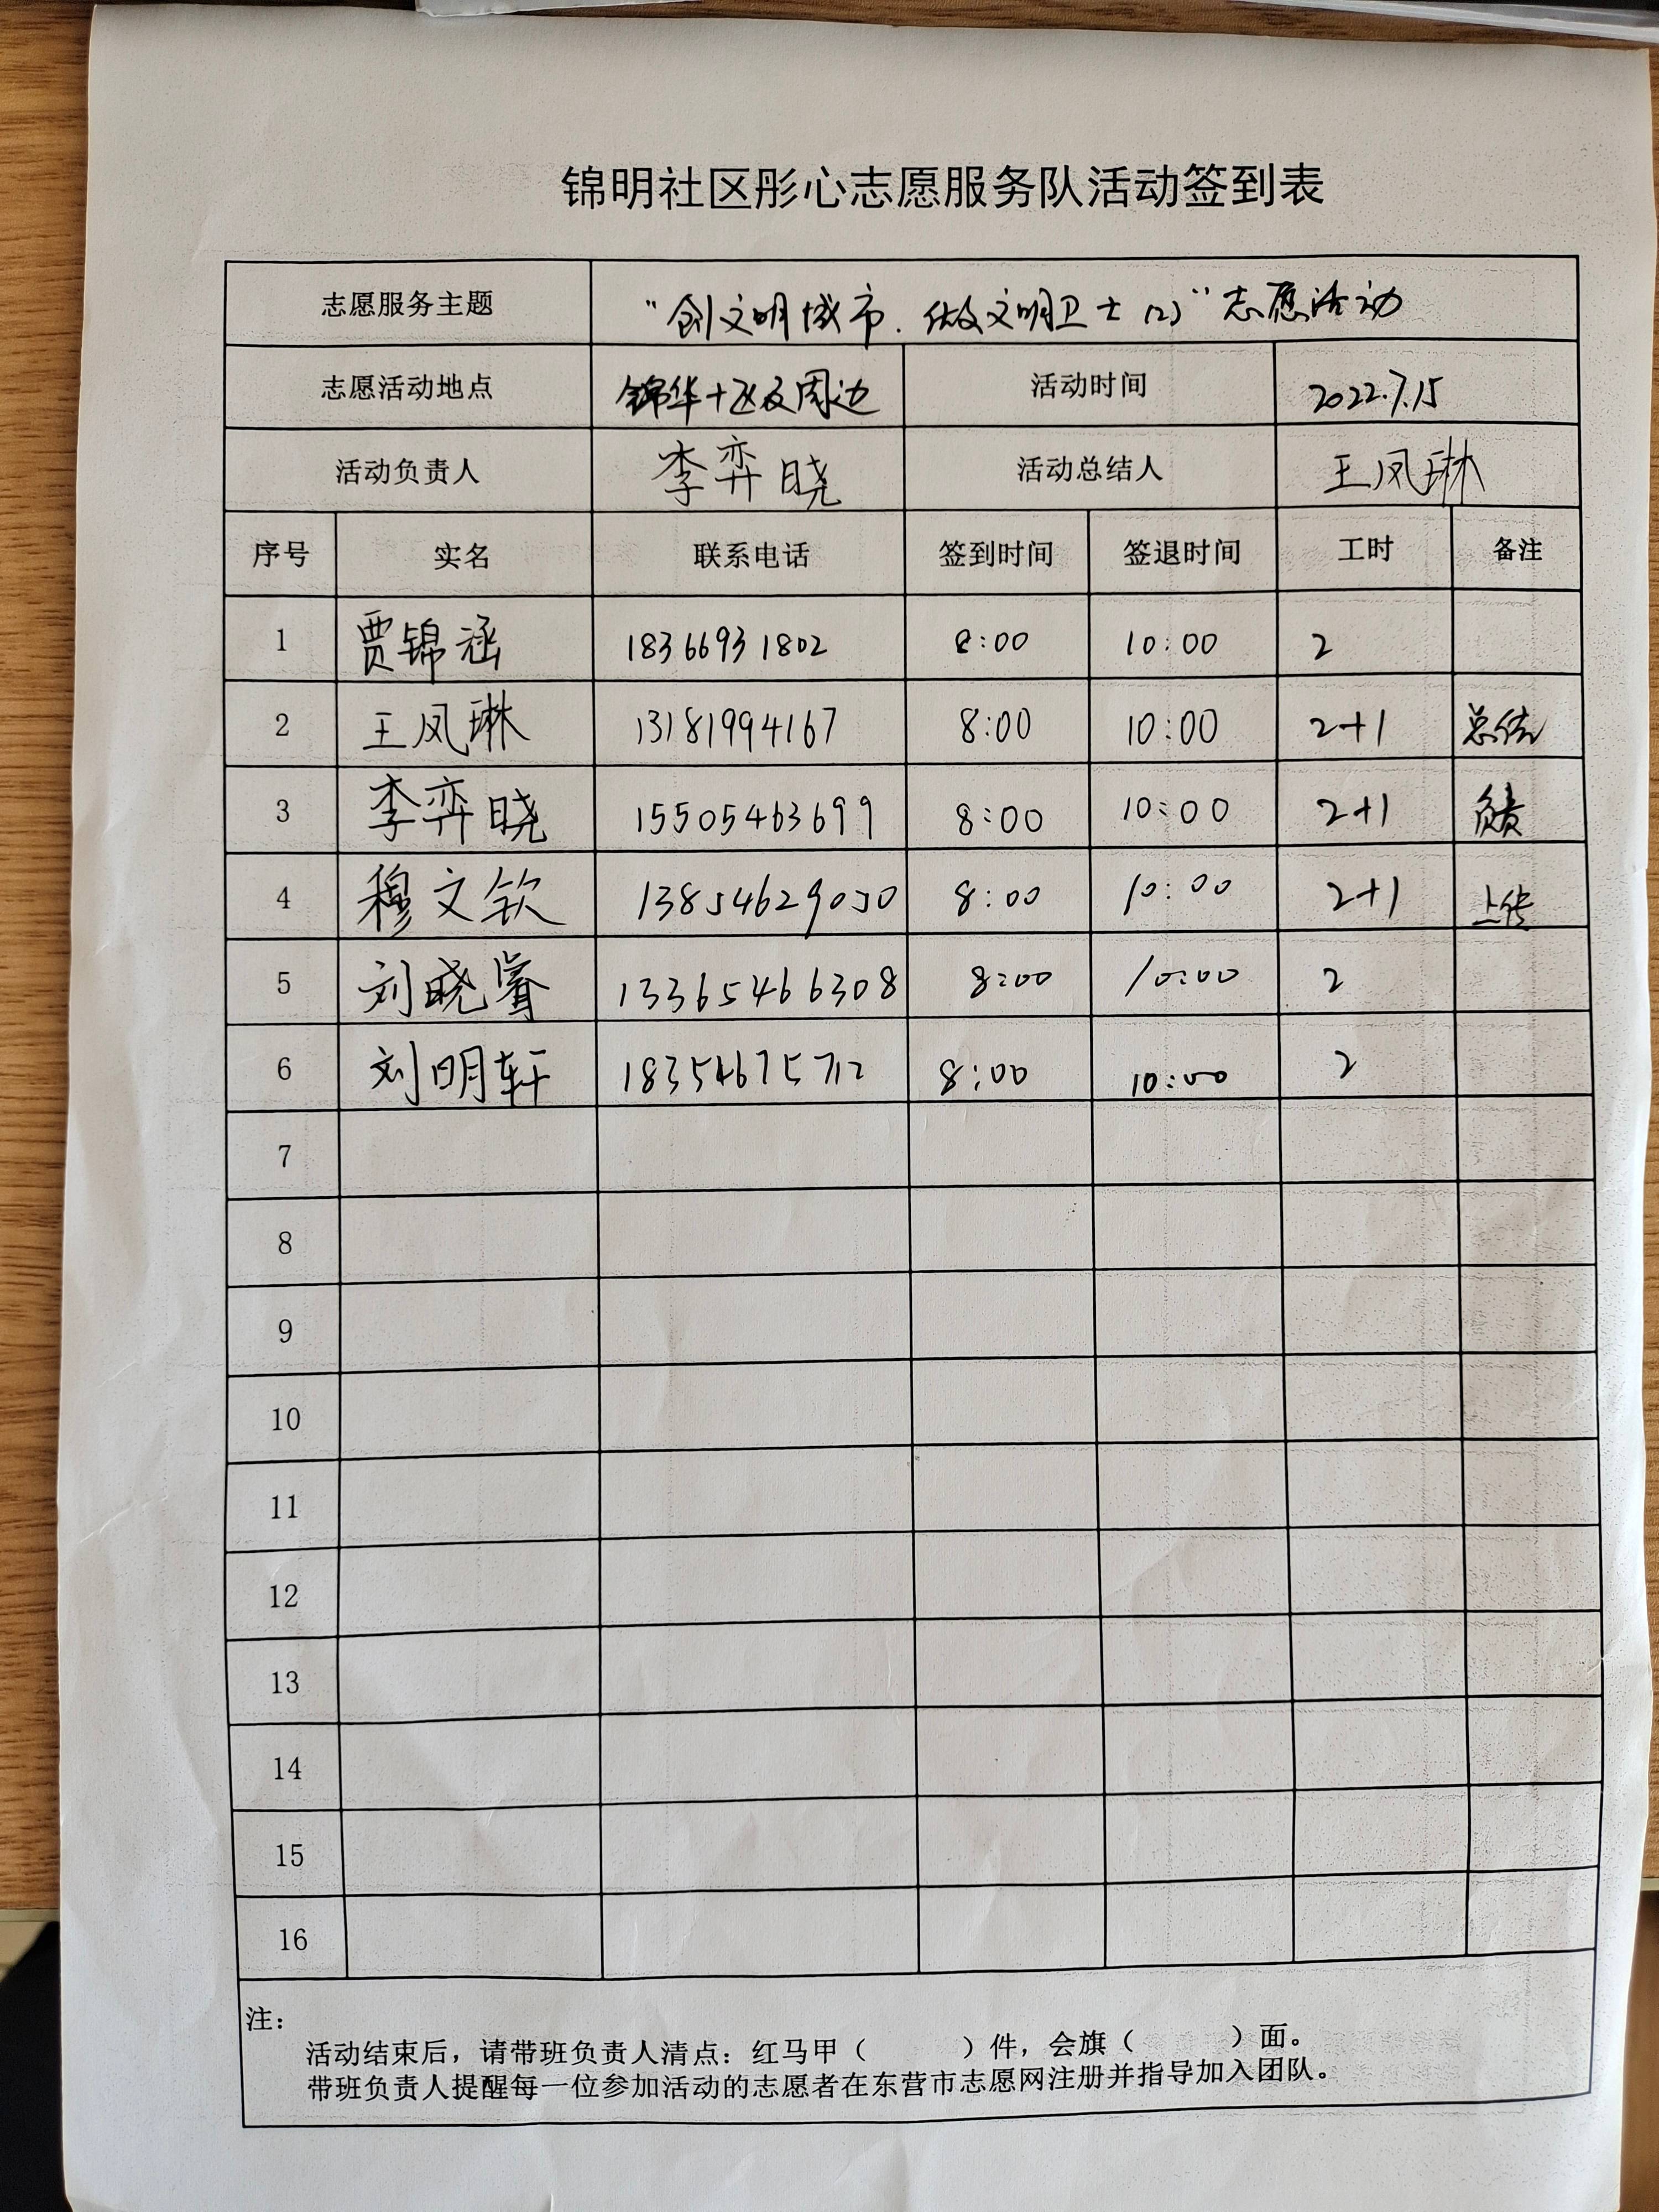 锦明社区彤心志愿服务队活动签到表
志愿服务主题 “创文明城市.做文明卫士(2)”志愿活动
志愿活动地点 锦华十区及周边 活动时间 2022.7.15
活动负责人 李弈晓 活动总结人 王凤琳
序号 实名 联系电话 签到时间 签退时间 工时 备注
1 贾锦涵 18366931802 8:00 10:00 2
2 王凤琳 13181994167 8:00 10:00 2+1 总结
3 李弈晓 15505463699 8:00 10:00 2+1 负责
4 穆文钦 13854629050 8:00 10:00 2+1 上传
5 刘晓睿 13365466308 8:00 10:00 2
6 刘明轩 18354675712 8:00 10:00 2
7
8
9
10
11
12
13
14
15
16
注：
活动结束后，请带班负责人清点：红马甲（ ）件，会旗（ ）面。
带班负责人提醒每一位参加活动的志愿者在东营市志愿网注册并指导加入团队。